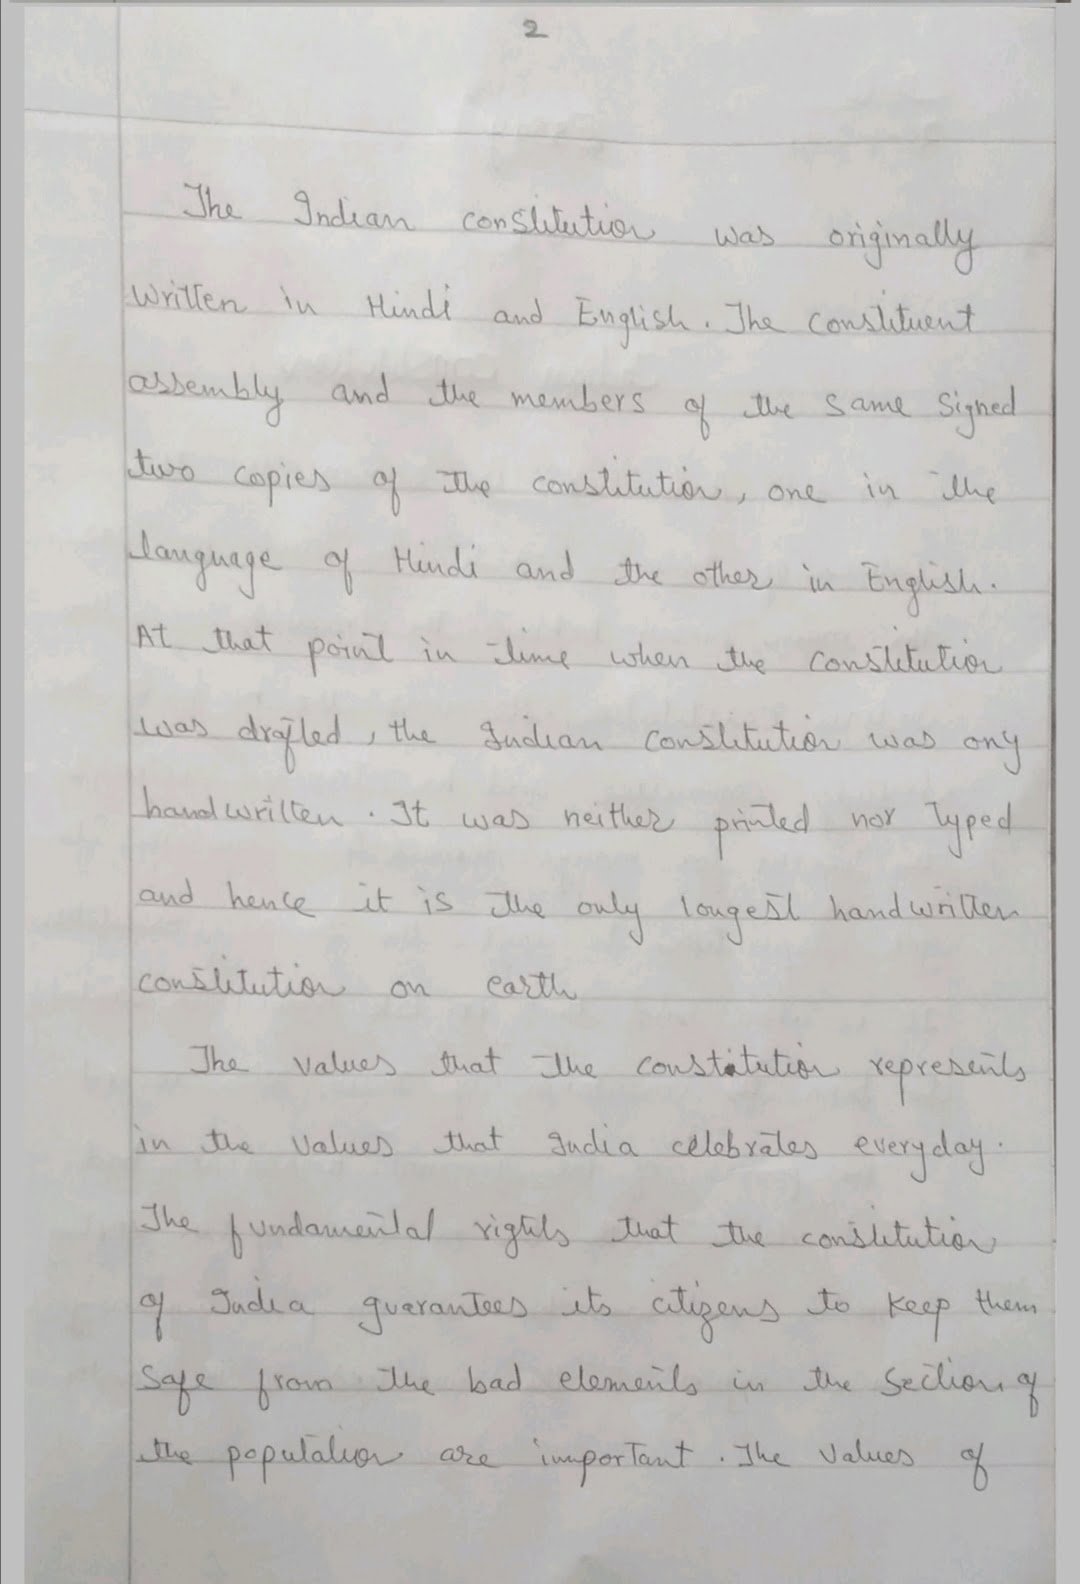 2
The Indian constitution was originally
written in Hindi and English. The constituent
assembly and the members of the same signed
two copies of the constitution, one in the
language of Hindi and the other in English.
At that point in time when the constitution
was drafted, the Indian constitution was ony
handwritten. It was neither printed nor typed
and hence it is the only longest handwritten
constitution on earth
The values that the constitution represents
in the values that India celebrates everyday.
The fundamental rights that the constitution
of India guarantees its citizens to keep them
safe from the bad elements in the section of
the population are important. The values of